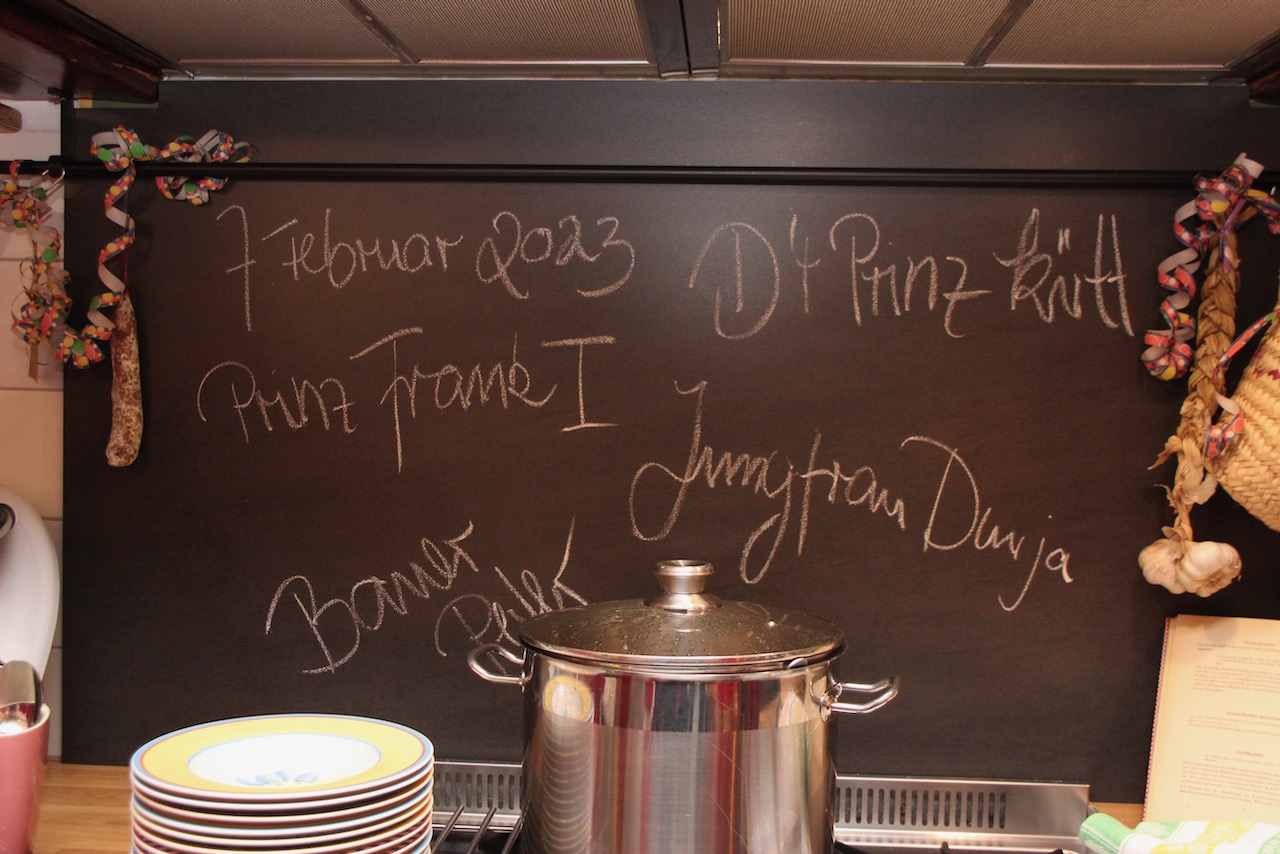 7 Februar 2023
D'r Prinz kütt
Prinz Frank I
Jungfrau Dunja
Bauer